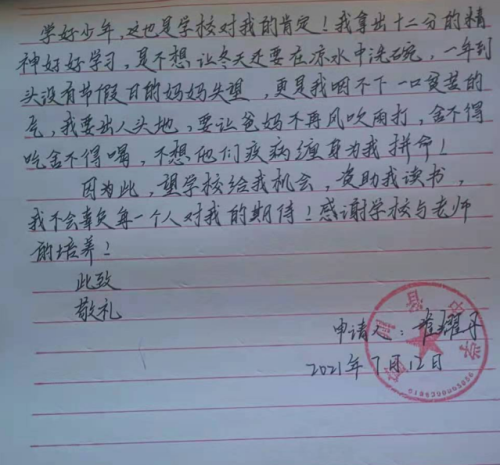 学好少年,这也是学校对我的肯定!我拿出十二分的精
神好好学习,是不想让冬天还要在凉水中洗碗,一年到
头没有节假日的妈妈失望,更是我咽不下一口贫苦的
气,我要出人头地,要让爸妈不再风吹雨打,舍不得
吃舍不得喝,不想他们疾病缠身为我拼命!
因为此,望学校给我机会,资助我读书,
我不会辜负每一个人对我的期待!感谢学校与老师
的培养!
此致
敬礼
申请人:
2021年7月12日